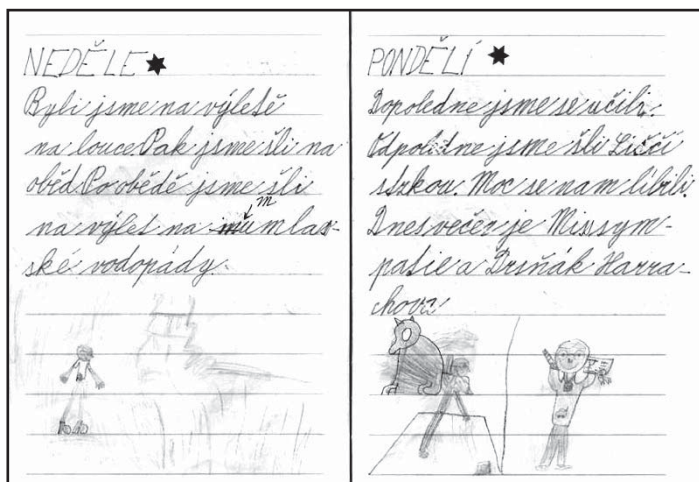 NEDĚLE
Byli jsme na výletě
na louce. Pak jsme šli na
oběd. Po obědě jsme šli
na výlet na mumlav-
ské vodopády.
PONDĚLÍ
Dopoledne jsme se učili.
Odpoledne jsme šli Liščí
stzkou. Moc se nam líbili.
Dnes večer je Missym-
patie a Drsňák Harra-
chova